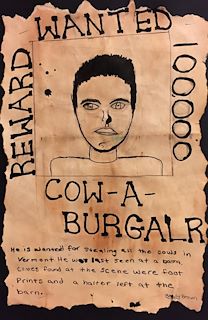 WANTED
REWARD
100000
COW-A-
BURGALR
He is wanted for stealing all the cows in
Vermont He was last seen at a barn
clues found at the scene were foot
prints and a halter left at the
barn.